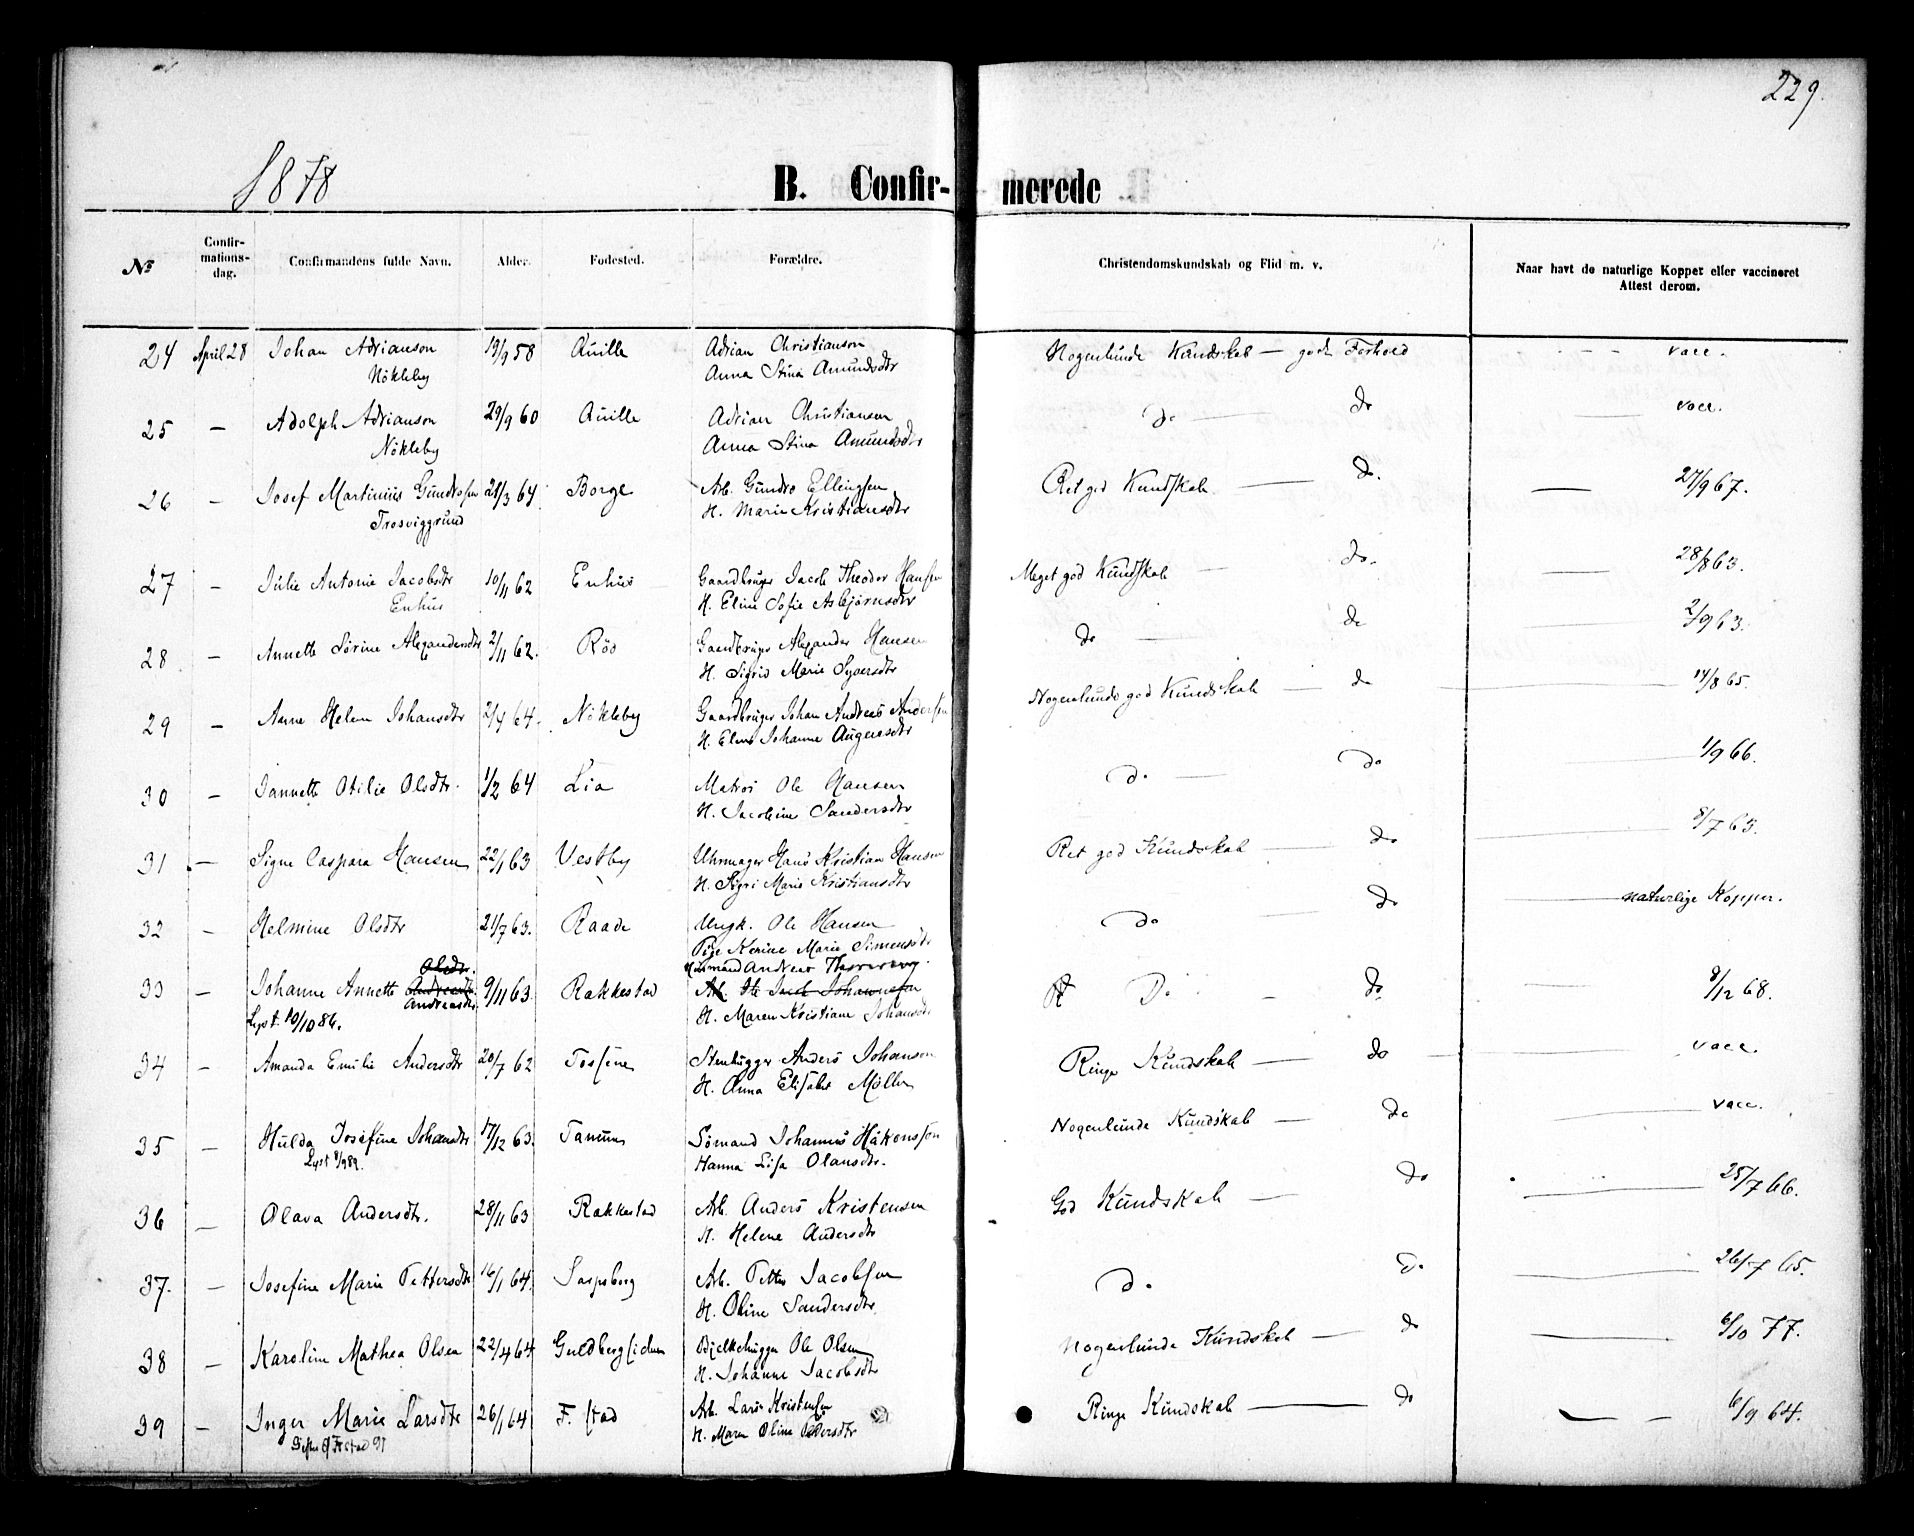 229.
1878
B. Confir- merede
№ Confir-mations-dag. Confirmandens fulde Navn. Alder. Fødested. Forældre. Christendomskundskab og Flid m. v. Naar havt de naturlige Kopper eller vaccineret Attest derom.
24 April 28 Johan Adrianson 19/9 58 Qville Adrian Christianson Nogenlunde Kundskab — godt Forhold vacc.
Nökleby Anna Stina Amundsdtr
25 — Adolph Adrianson 29/9 60 Qville Adrian Christiansen Do — do vacc.
Nökleby Anna Stina Amundsdtr
26 — Josef Martinius Gundrosen 21/3 64 Borge Arb. Gundro Ellingsen Ret god Kundskab — do. — 27/9 67.
Trosviggrund H. Marie Kristiansdtr
27 — Julie Antonie Jacobsdtr 10/11 62 Enhus Gaardbruger Jacob Theodor Hansen Meget god Kundskab — do. — 28/8 63.
Enhus H. Eline Sofie Asbjørnsdtr
28 — Annette Sørine Alexandersdtr 2/11 62. Röd Gaardbruger Alexander Hansen do — do — 2/9 63.
H. Sigrid Marie Syversdtr
29 — Anne Helene Johansdtr 2/4 64. Nökleby Gaardbruger Johan Andreas Andersen Nogenlunde god Kundskab — do — 14/8 65.
H. Johanne Augensdtr
30 — Jannette Otilie Olsdtr. 1/2 64 Lia Matros Ole Hansen do — do — 1/9 66.
H. Jacobine Sandersdtr
31 — Signe Caspara Hansen 22/1 63 Vestby Uhrmager Hans Kristian Hansen Ret god Kundskab — do — 8/7 63.
H. Sigri Marie Kristiansdtr
32 — Helmine Olsdtr 21/7 63. Raade Ungk. Ole Hansen do — do — naturlige Kopper.
Pige Karine Marie Simensdtr
Olsdtr. Husmand Andreas
33 — Johanne Annette Andreasdtr 9/11 63. Rakkestad Arb. Ole Jacob Johannesen Do — do — 8/12 68.
Andreasdtr
Lyst 10/10 86. H. Maren Kristiane Johansdtr
34 — Amanda Emilie Andersdtr 20/7 62 Tossene Stenhugger Anders Johanson Ringe Kundskab — do — vacc.
H. Anna Elisabet Möller
35 — Hulda Josefine Johansdtr 17/12 63. Tanum Sømand Johannes Håkonsson Nogenlunde Kundskab — do — vacc.
Lyst 8/9 89. Hanna Lisa Olansdtr.
36 — Olava Andersdtr. 28/11 63 Rakkestad Arb. Anders Kristensen God Kundskab — do — 25/7 66.
H. Helene Andersdtr
37. — Josefine Marie Pettersdtr 16/1 64. Sarpsborg Arb. Petter Jacobsen do. do. — 26/7 65.
H. Oline Sandersdtr.
38 — Karoline Mathea Olsen 22/4 64 Guldbergsiden Bjelkehugger Ole Olsen Nogenlunde Kundskab — do — 6/10 77.
H. Johanne Jacobsdtr
39 — Inger Marie Larsdtr 26/1 64 F. stad Arb. Lars Kristensen Ringe Kundskab — do — 6/9 64.
H. Maren Oline Pedersdtr